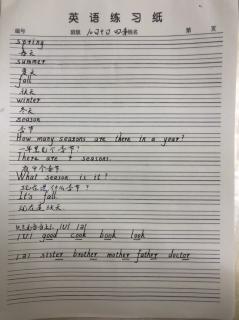 英语练习纸
编号 班级 姓名 第 页
spring
春天
summer
夏天
fall
秋天
winter
冬天
season
季节
How many seasons are there in a year?
一年里有几个季节?
There are 4 seasons.
有4个季节
What season is it?
现在是什么季节?
It's fall.
现在是秋天
|U| |ə|
|U| good cook book look
|ə| sister brother mother father doctor